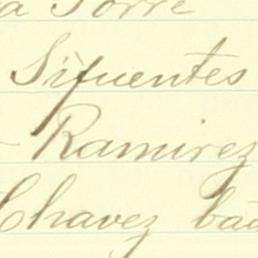 a Torre
Sifuentes
Ramirez
Chavez bau